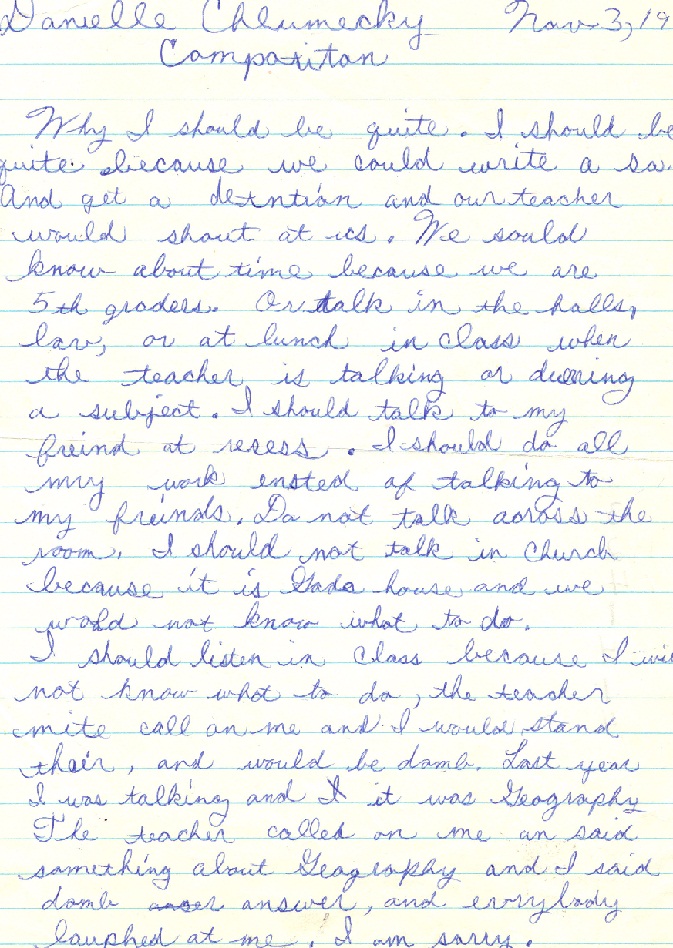 Danielle Chlumecky Nov. 3, 19
Compositon
Why I should be quite. I should be
quite because we could write a sa.
And get a detntion and our teacher
would shout at us. We sould
know about time because we are
5th graders. Or talk in the halls,
lav, or at lunch in class when
the teacher is talking or dureing
a subject. I should talk to my
freind at resess. I should do all
my work ensted of talking to
my freinds. Do not talk aoross the
room. I should not talk in Church
because it is Gods house and we
wold not know what to do.
I should listen in class because I wi
not know what to do, the teacher
mite call on me and I would stand
their, and would be domb. Last year
I was talking and I it was Geography
The teacher called on me an said
something about Geography and I said
domb answer, and evrybody
laughed at me. I am sorry.